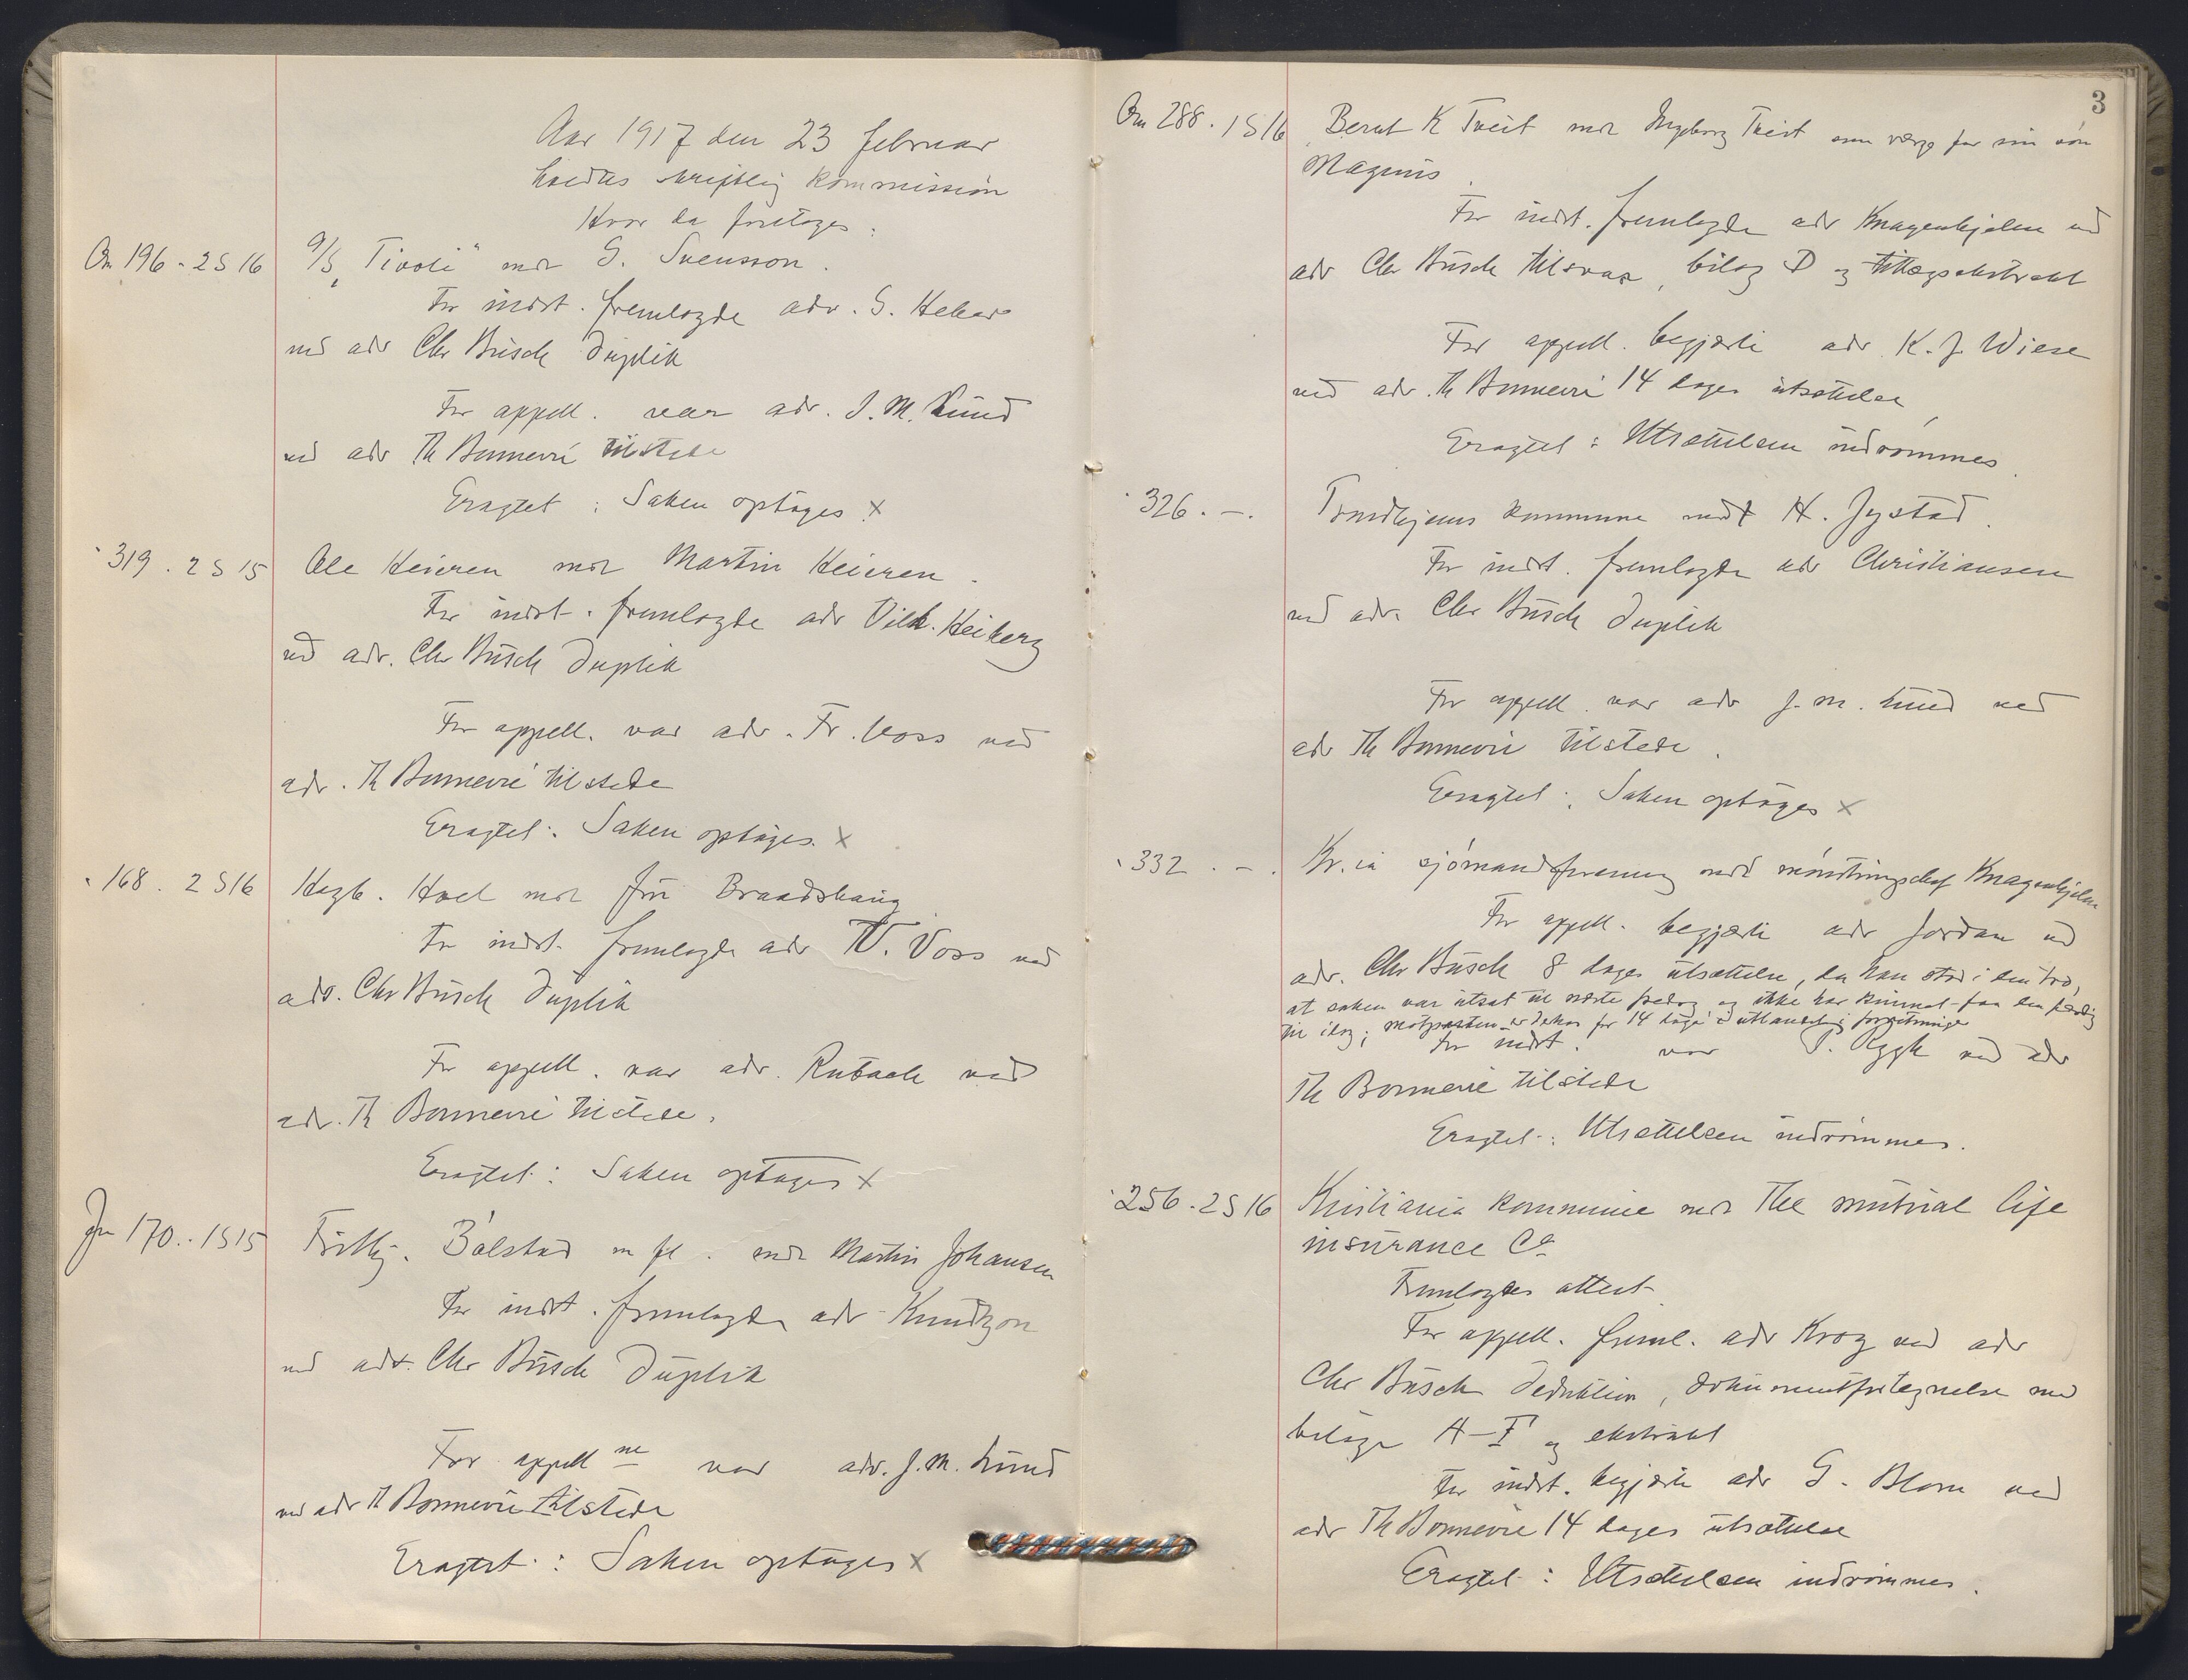 Aar 1917 den 23 februar
holdtes skriftlig kommission
Hvor da foretoges:
Om 196 - 2 S 16 A/S "Tivoli" mot S. Svensson.
For indst. fremlagde adv. S. Heber
ved adv Chr Büsch Duplik
For appell. var adv. J. M. Lund
ved adv Th Bonnevie tilstede
Eragtet: Saken optages x
" 319 . 2 S 15 Ole Heieren mot Martin Heieren.
For indst. fremlagde adv Vilh. Heiberg
ved adv. Chr Büsch Duplik
For appell. var adv. Fr. Voss ved
adv. Th Bonnevie tilstede
Eragtet: Saken optages. x
" 168 . 2 S 16 Hagb. Hoel mot Braadshaug
For indst. fremlagde adv Voss ved
adv. Chr Büsch Duplik
For appell. var adv. Rubach ved
adv. Th Bonnevie tilstede.
Eragtet: Saken optages x
170 . 1 S 15 Bålstad m fl. mot Martin Johansen
For indst. fremlagde adv Knudtzon
ved adv. Chr Büsch Duplik
For appell ne var adv. J. M. Lund
ved adv Th Bonnevie tilstede
Eragtet: Saken optages x
3
Om 288 . 1 S 16 Bernt K Tveit mot Ingeborg Tveit som værge for sin søn
Magnus.
For indst. fremlagde adv Knagenhjelm ved
adv Chr Büsch tilsvar, bilag D og tillægsekstrakt
For appell. begjærte adv K. J. Wiese
ved adv. Th Bonnevie 14 dages utsættelse
Eragtet: Utsættelsen indrømmes.
" 326 . - . Trondhjems kommune mot H. Jystad.
For indst. fremlagde adv Christiansen
ved adv. Chr Büsch Duplik
For appell. var adv J. M. Lund ved
adv Th Bonnevie tilstede.
Eragtet: Saken optages x
" 332 . - . Kr.ia sjømandsforening mot mønstringschef Knagenhjelm
For appell. begjærte adv Jordan ved
adv. Chr Büsch 8 dages utsættelse, da han stod i den tro,
at saken var utsat til næste fredag og ikke har kunnet faa den færdig
til idag; motparten er dekar for 14 dage i utlandet i forretninger
For indst. var P. Rygh ved adv
Th Bonnevie tilstede
Eragtet: Utsættelsen indrømmes.
" 256 . 2 S 16 Kristiania kommune mot The mutual life
insurance Co
Fremlagdes attest
For appell. freml. adv Krog ved adv
Chr Büsch Deduktion, dokumentfortegnelse med
bilage A-F og ekstrakt
For indst. begjærte adv G. Blom ved
adv Th Bonnevie 14 dages utsættelse
Eragtet: Utsættelsen indrømmes.